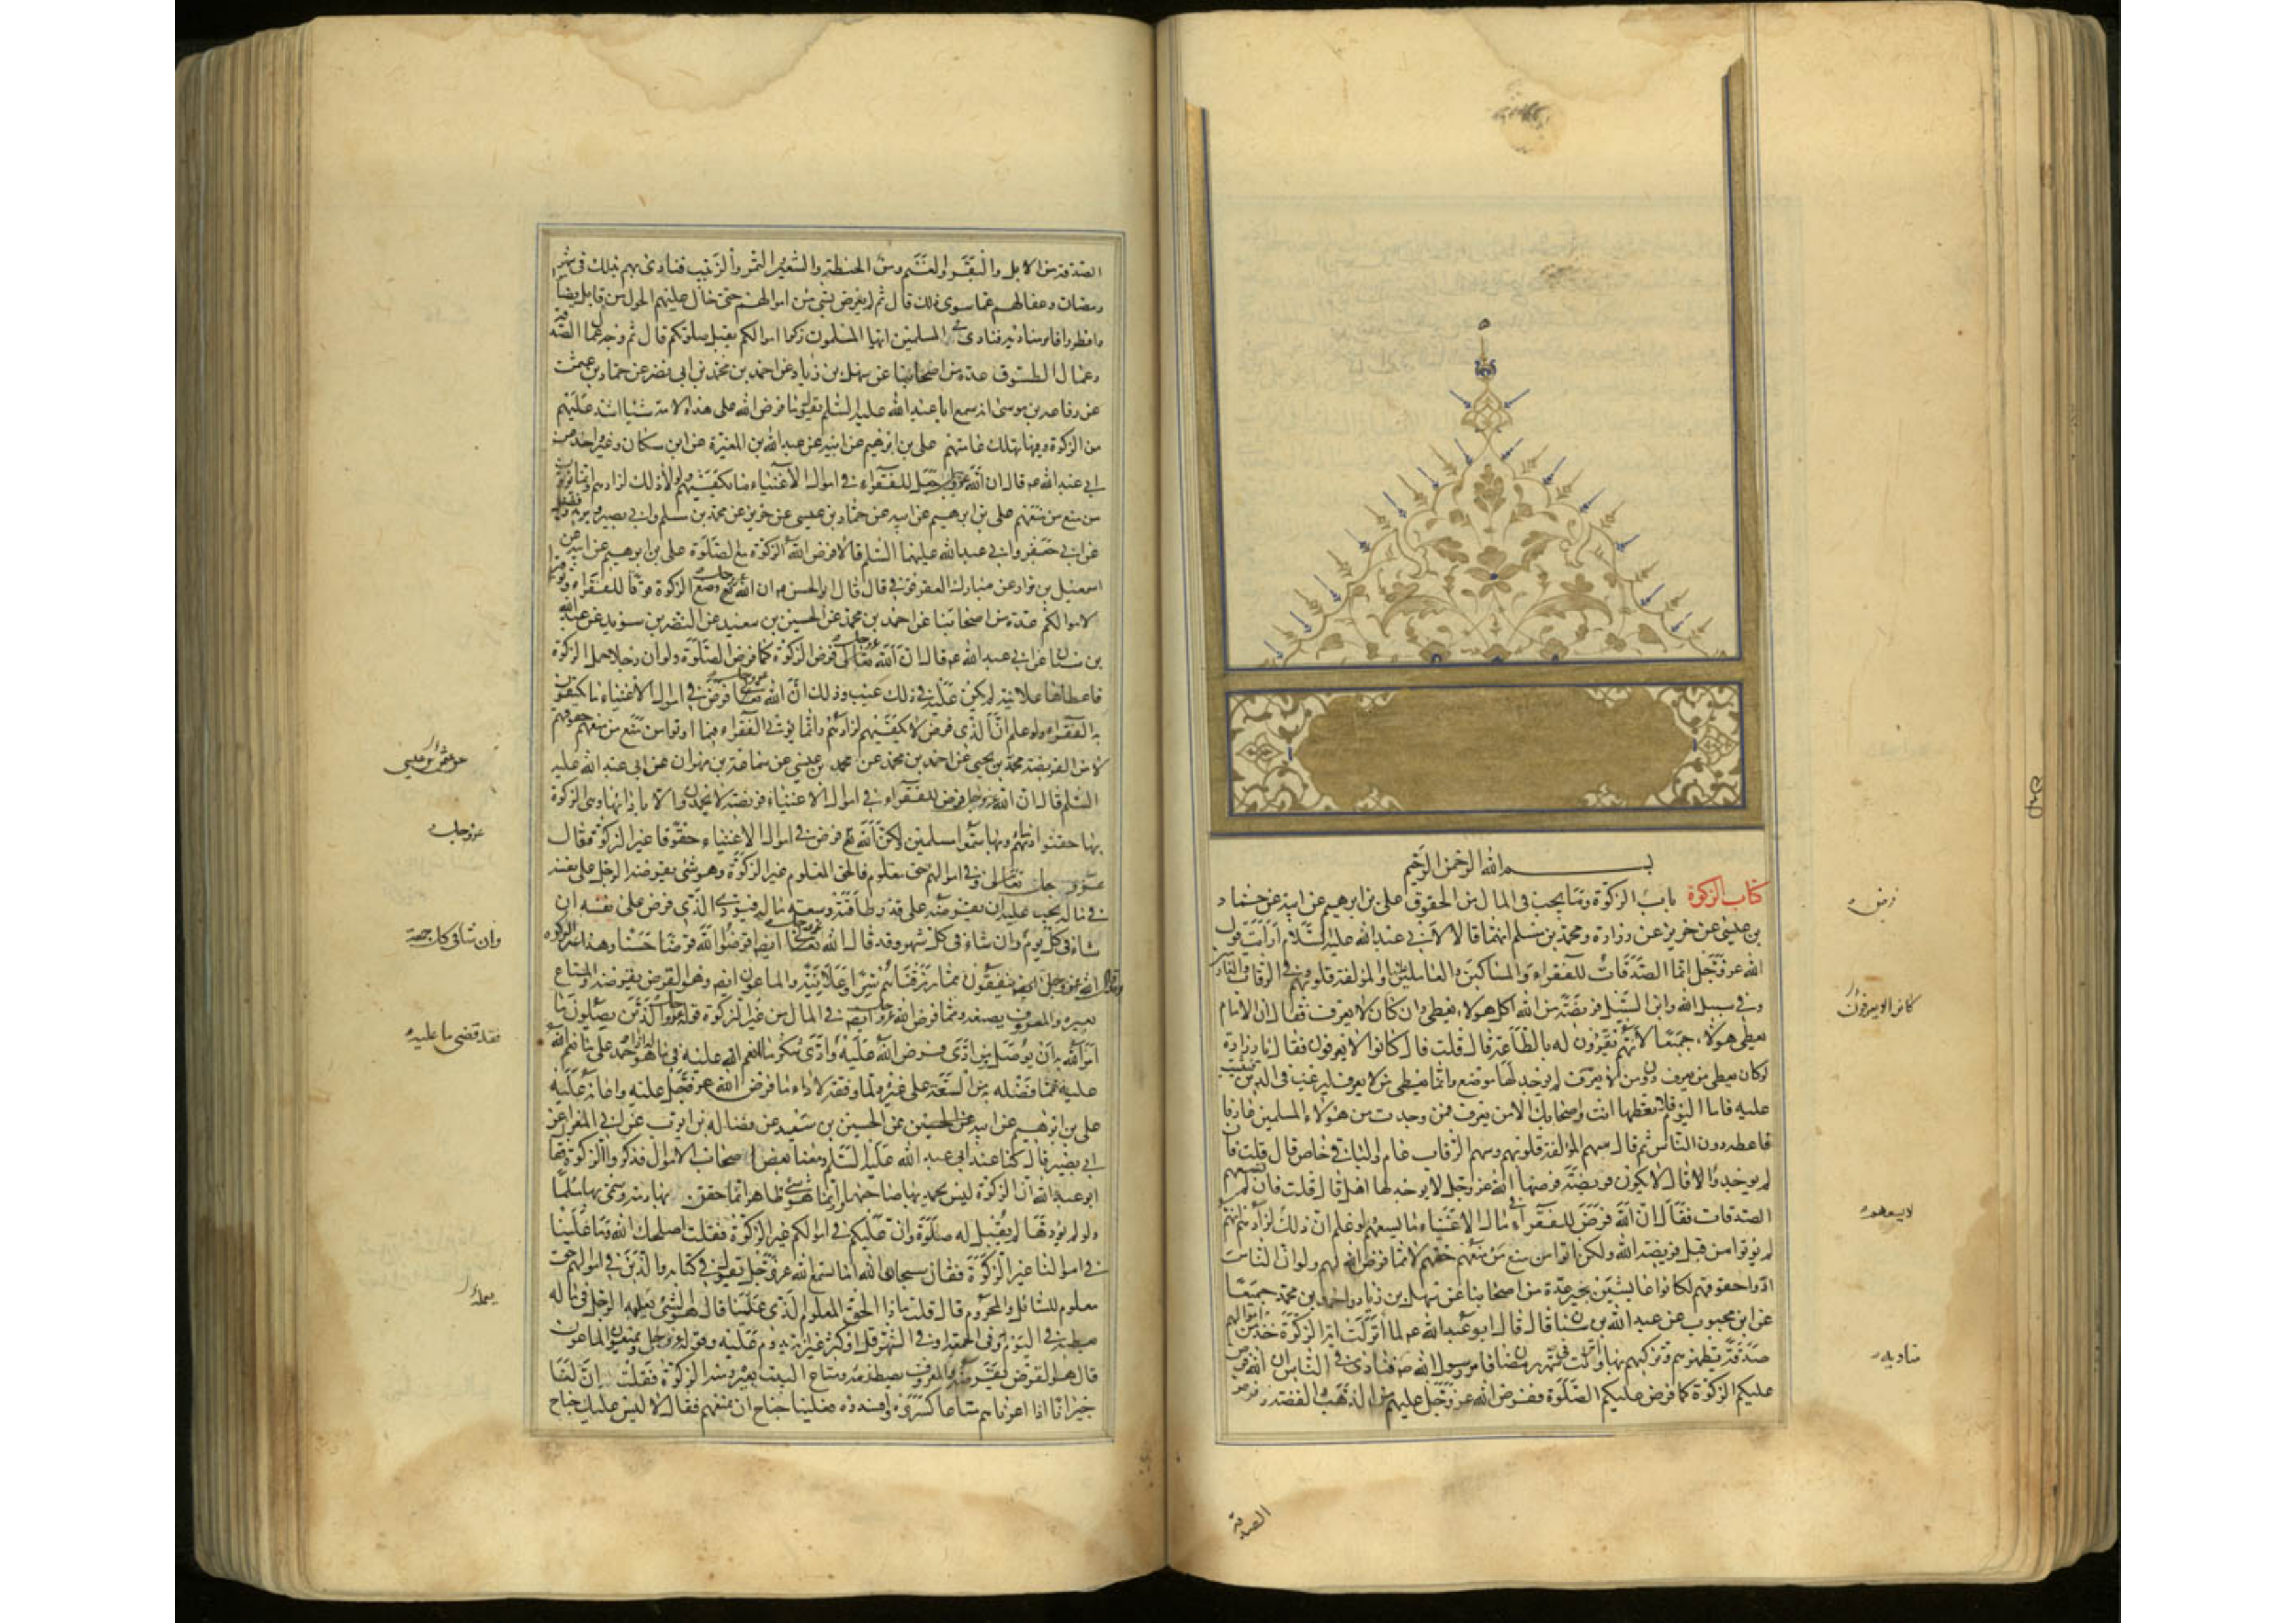 بسم الله الرحمن الرحيم
كتاب الزكوة باب الزكوة وما يجب فى المال من الحقوق على بن ابرهيم عن ابيه عن حماد
بن عيسى عن حريز عن زرارة ومحمد بن مسلم انهما قالا لابى عبد الله عليه السلام ارايت قول
الله عز وجل انما الصدقات للفقراء والمساكين والعاملين عليها والمؤلفة قلوبهم وفى الرقاب والغارمين
وفى سبيل الله وابن السبيل فريضة من الله اكل هولاء يعطى وان كان لا يعرف فقال ان الامام
يعطى هولاء جميعا لانهم يقرون له بالطاعة قال قلت فان كانوا لا يعرفون فقال يا زرارة
لو كان يعطى من يعرف دون من لا يعرف لم يوجد لها موضع وانما يعطى من لا يعرف ليرغب فى الدين فيثبت
عليه فاما اليوم فلا تعطها انت واصحابك الا من يعرف فمن وجدت من هولاء المسلمين عارفا
فاعطه دون الناس ثم قال سهم المؤلفة قلوبهم وسهم الرقاب عام والباقى خاص قال قلت فان
لم يوجدوا قال لا يكون فريضة فرضها الله عز وجل لا يوجد لها اهل قال قلت فان لم تسعهم
الصدقات فقال ان الله فرض للفقراء فى مال الاغنياء ما يسعهم ولو علم ان ذلك لا يسعهم لزادهم انهم
لم يؤتوا من قبل فريضة الله ولكن اتوا من منع من منعهم حقهم لا مما فرض الله لهم ولو ان الناس
ادوا حقوقهم لكانوا عايشين بخير عدة من اصحابنا عن سهل بن زياد واحمد بن محمد جميعا
عن ابن محبوب عن عبد الله بن سنان قال قال ابو عبد الله ع لما انزلت اية الزكوة خذ من اموالهم
صدقة تطهرهم وتزكيهم بها وانزلت فى شهر رمضان فامر رسول الله ص فنادى فى الناس ان الله فرض
عليكم الزكوة كما فرض عليكم الصلوة ففرض الله عز وجل عليهم من الذهب والفضة وفرض
الصدقة
كانوا لا يعرفون
لا يسعهم
مناديه
الصدقة من الابل والبقر والغنم ومن الحنطة والشعير والتمر والزبيب فنادى بهم بذلك فى شهر
رمضان وعفا لهم عما سوى ذلك قال ثم لم يفرض بشىء من اموالهم حتى حال عليهم الحول من قابل فصاموا
وافطروا فامر مناديه فنادى فى المسلمين ايها المسلمون زكوا اموالكم تقبل صلوتكم قال ثم وجه عمال الصدقة
وعمال الطسوق عدة من اصحابنا عن سهل بن زياد عن احمد بن محمد بن ابى نصر عن حماد بن عثمان
عن رفاعة بن موسى انه سمع ابا عبد الله عليه السلم يقول ما فرض الله على هذه الامة شيئا اشد عليهم
من الزكوة وفيها تهلك عامتهم على بن ابرهيم عن ابيه عن عبد الله بن المغيرة عن ابن مسكان وغير واحد عن
ابى عبد الله ع قال ان الله عز وجل جعل للفقراء فى اموال الاغنياء ما يكفيهم ولولا ذلك لزادهم وانما يؤتون
من منع من منعهم على بن ابرهيم عن ابيه عن حماد بن عيسى عن حريز عن محمد بن مسلم وابى بصير وبريد وفضيل
عن ابى جعفر وابى عبد الله عليهما السلم قالا فرض الله الزكوة مع الصلوة على بن ابرهيم عن ابيه عن
اسمعيل بن مرار عن مبارك العقرقوفى قال قال ابو الحسن ع ان الله عز وجل وضع الزكوة قوتا للفقراء وتوفيرا
لاموالكم عدة من اصحابنا عن احمد بن محمد عن الحسين بن سعيد عن النضر بن سويد عن عبد الله
بن سنان عن ابى عبد الله ع قال ان الله عز وجل فرض الزكوة كما فرض الصلوة ولو ان رجلا حمل الزكوة
فاعطاها علانية لم يكن عليه فى ذلك عيب وذلك ان الله عز وجل فرض فى اموال الاغنياء ما يكتفون
به الفقراء ولو علم ان الذى فرض لا يكفيهم لزادهم وانما يؤتى الفقراء فيما اوتوا من منع من منعهم حقوقهم
لا من الفريضة محمد بن يحيى عن احمد بن محمد عن محمد بن عيسى عن سماعة بن مهران عن ابى عبد الله عليه
السلم قال ان الله عز وجل فرض للفقراء فى اموال الاغنياء فريضة لا يحمدون الا بادائها وهى الزكوة
بها حقنوا دمائهم وبها سموا مسلمين ولكن الله تع فرض فى اموال الاغنياء حقوقا غير الزكوة فقال
عز وجل تعالى وفى اموالهم حق معلوم فالحق المعلوم غير الزكوة وهو شىء يفرضه الرجل على نفسه
فى ماله يجب عليه ان يفرضه على قدر طاقته وسعة ماله فيؤدى الذى فرض على نفسه ان
شاء فى كل يوم وان شاء فى كل شهر وقد قال الله عز وجل ايضا اقرضوا الله قرضا حسنا وهذا غير الزكوة
وقال الله عز وجل ايضا ينفقون مما رزقناهم سرا وعلانية والماعون ايضا وهو القرض يقرضه والمتاع
يعيره والمعروف يصنعه ومما فرض الله عز وجل ايضا فى المال من غير الزكوة قوله عز وجل الذين يصلون ما
امر الله به ان يوصل ومن ادى ما فرض الله عليه وادى شكر ما انعم الله عليه فى ماله اذا هو حمده على ما انعم الله
عليه مما فضله به من السعة على غيره ولما وفقه لاداء ما فرض الله عز وجل عليه واعانه عليه
على بن ابرهيم عن ابيه عن الحسين بن سعيد عن فضالة بن ايوب عن ابى المغرا عن
ابى بصير قال كنا عند ابى عبد الله عليه السلم ومعنا بعض اصحاب الاموال فذكروا الزكوة فقال
ابو عبد الله ان الزكوة ليس يحمد بها صاحبها وانما هو شىء ظاهر انما حقن بها دمه وسمى بها مسلما
ولو لم يؤدها لم يقبل له صلوة وان عليكم فى اموالكم غير الزكوة فقلت اصلحك الله وما علينا
فى اموالنا غير الزكوة فقال سبحان الله اما تسمع الله عز وجل يقول فى كتابه والذين فى اموالهم حق
معلوم للسائل والمحروم قال قلت ماذا الحق المعلوم الذى علينا قال هو الشىء يعمله الرجل فى ماله
يعطيه فى اليوم او فى الجمعة او فى الشهر قل او كثر غير انه يدوم عليه وقوله عز وجل ويمنعون الماعون
قال هو القرض يقرضه والمعروف يصطنعه ومتاع البيت يعيره ومنه الزكوة فقلت ان لنا
جيرانا اذا اعرناهم متاعا كسروه وافسدوه فعلينا جناح ان نمنعهم فقال لا ليس عليك جناح
عن عثمن بن عيسى
عز وجل
وان شاء فى كل جمعة
فقد قضى ما عليه
يعمله